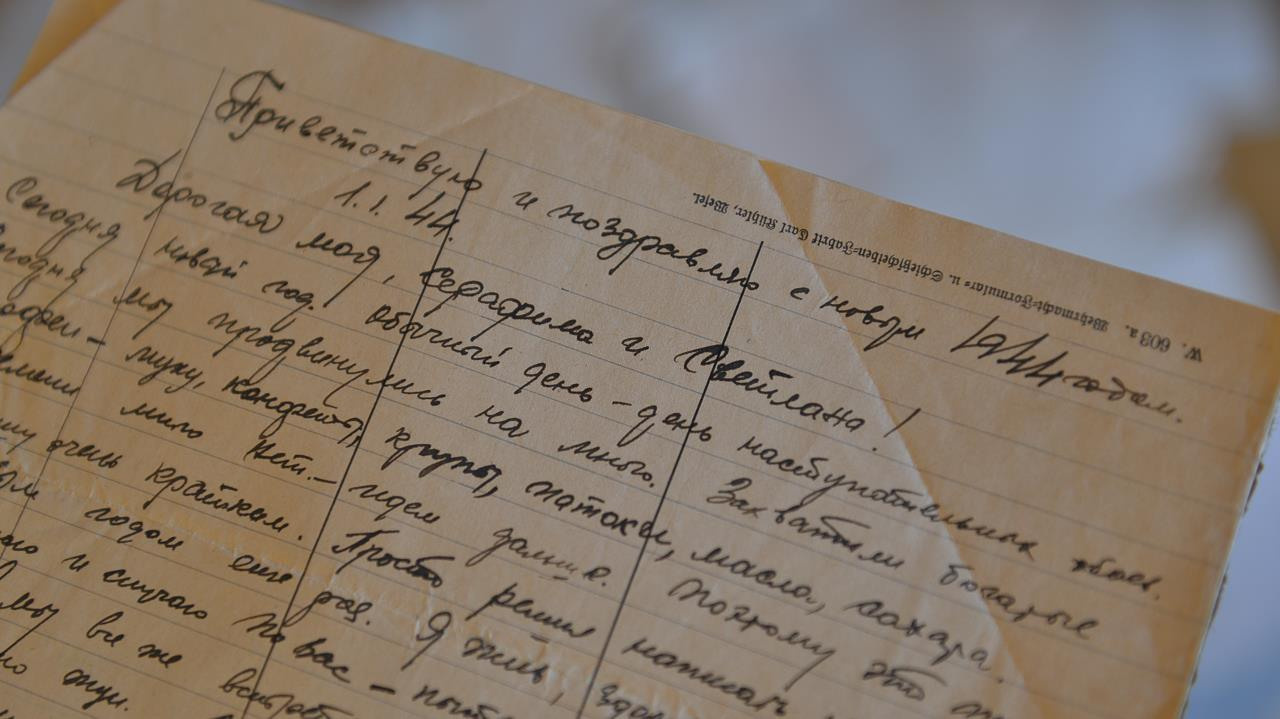 W. 603 a. Wehrmacht-Formular- u. Schießscheiben-Fabrik Carl Kühler, Wesel.
Приветствую и поздравляю с новым 1944 годом.
1.1.44.
Дорогая моя, Серафима и Светлана!
Сегодня новый год. Обычный день – день наступательных боев.
Сегодня мы продвинулись на много. Захватили богатые
офеи – муку, конфеты, крупы, патоки, масла, сахара.
нет. – идем дальше. Поэтому это
му очень кратким. Просто решил написать
годом еще раз. Я жив, здо
и случаю по вас –
мы все же встрет
но жди.